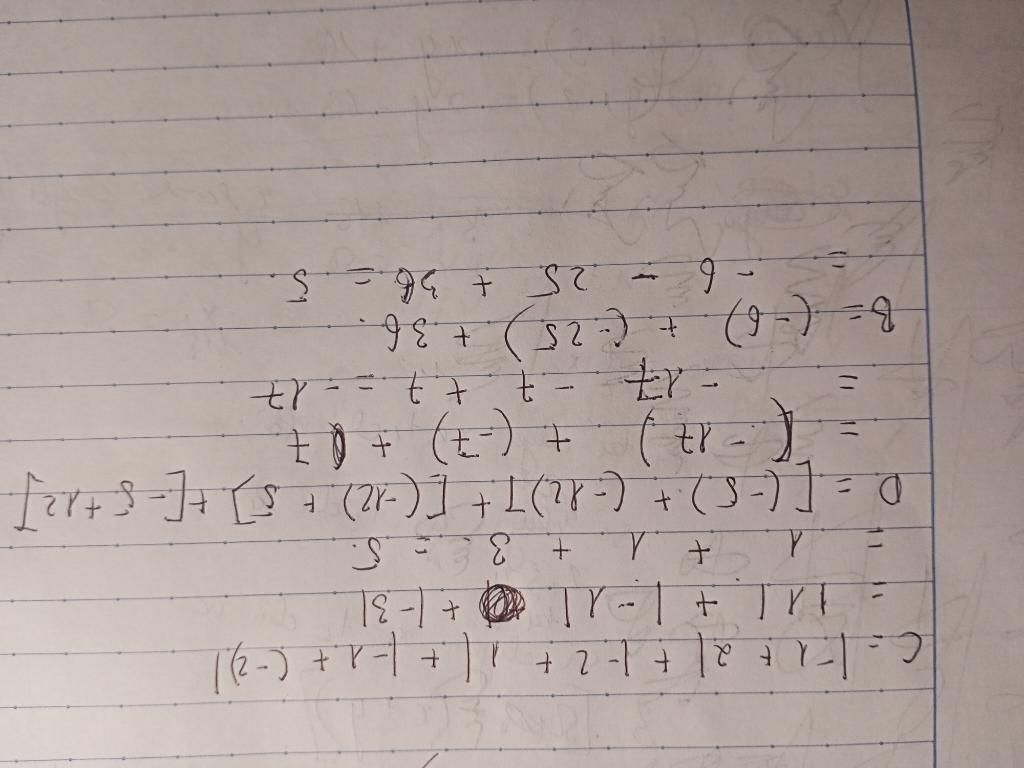 C = |-1 + 2| + |-2 + 1| + |-1 + (-2)|
= |1| + |-1| + |-3|
= 1 + 1 + 3 = 5.
D = [(-5) + (-12)] + [(-12) + 5] + [-5 + 12]
= (-17) + (-7) + 7
= -17 - 7 + 7 = -17
B = (-6) + (-25) + 36.
= -6 - 25 + 36 = 5.